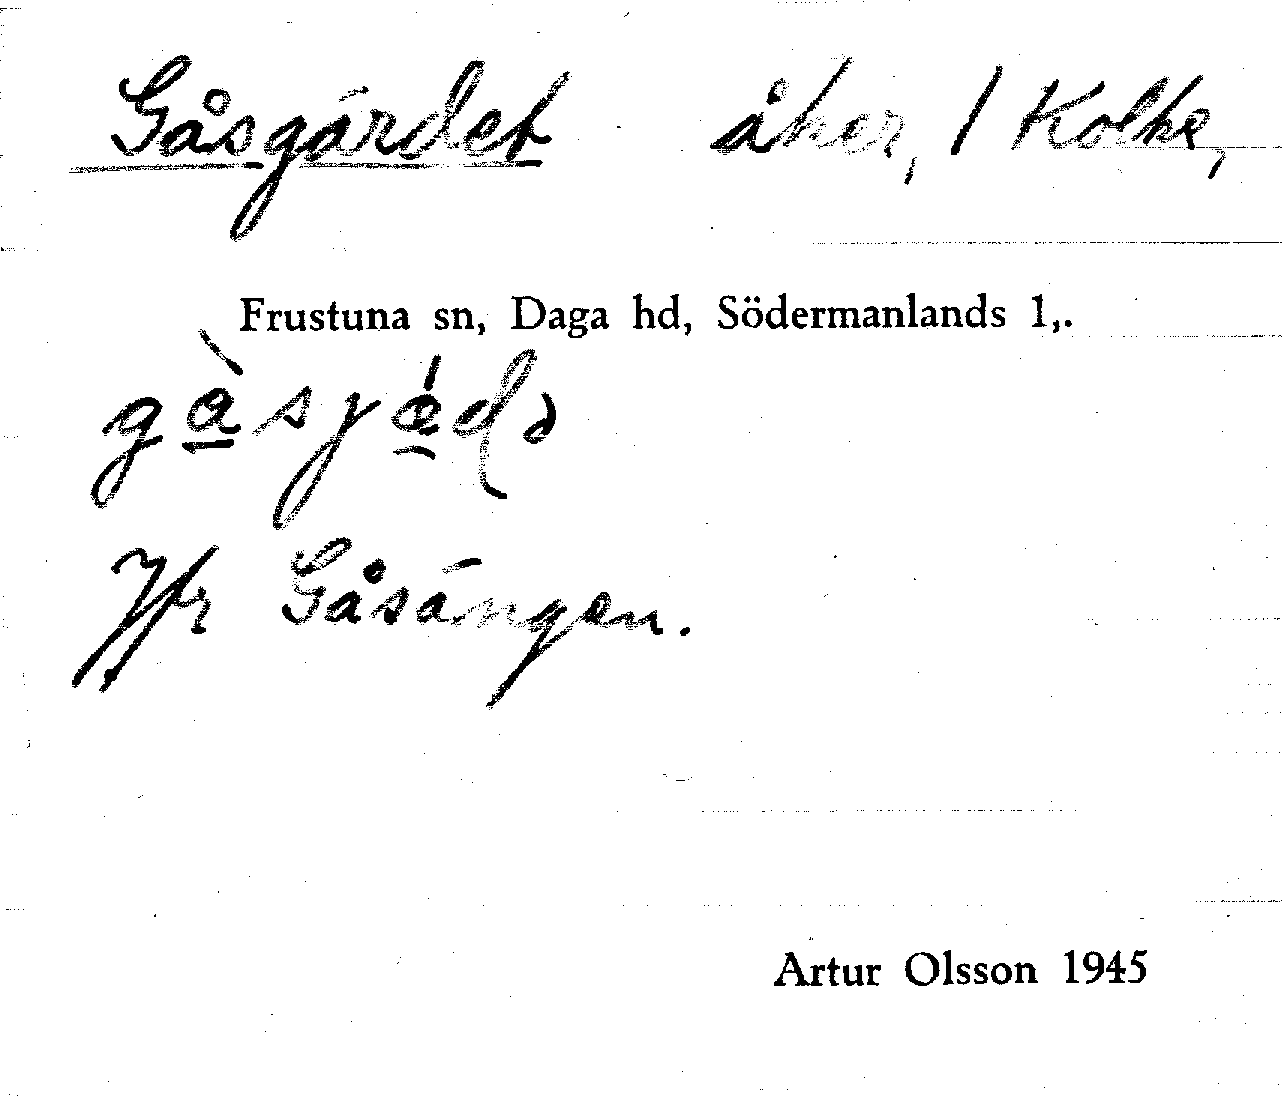 Gåsgärdet åker, / Kolke,
Frustuna sn, Daga hd, Södermanlands l,.
gàsjǽdə
Jfr Gåsängen.
Artur Olsson 1945